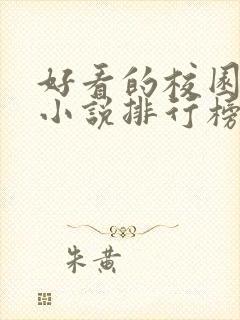 好看的校园
小说排行榜
朱黄